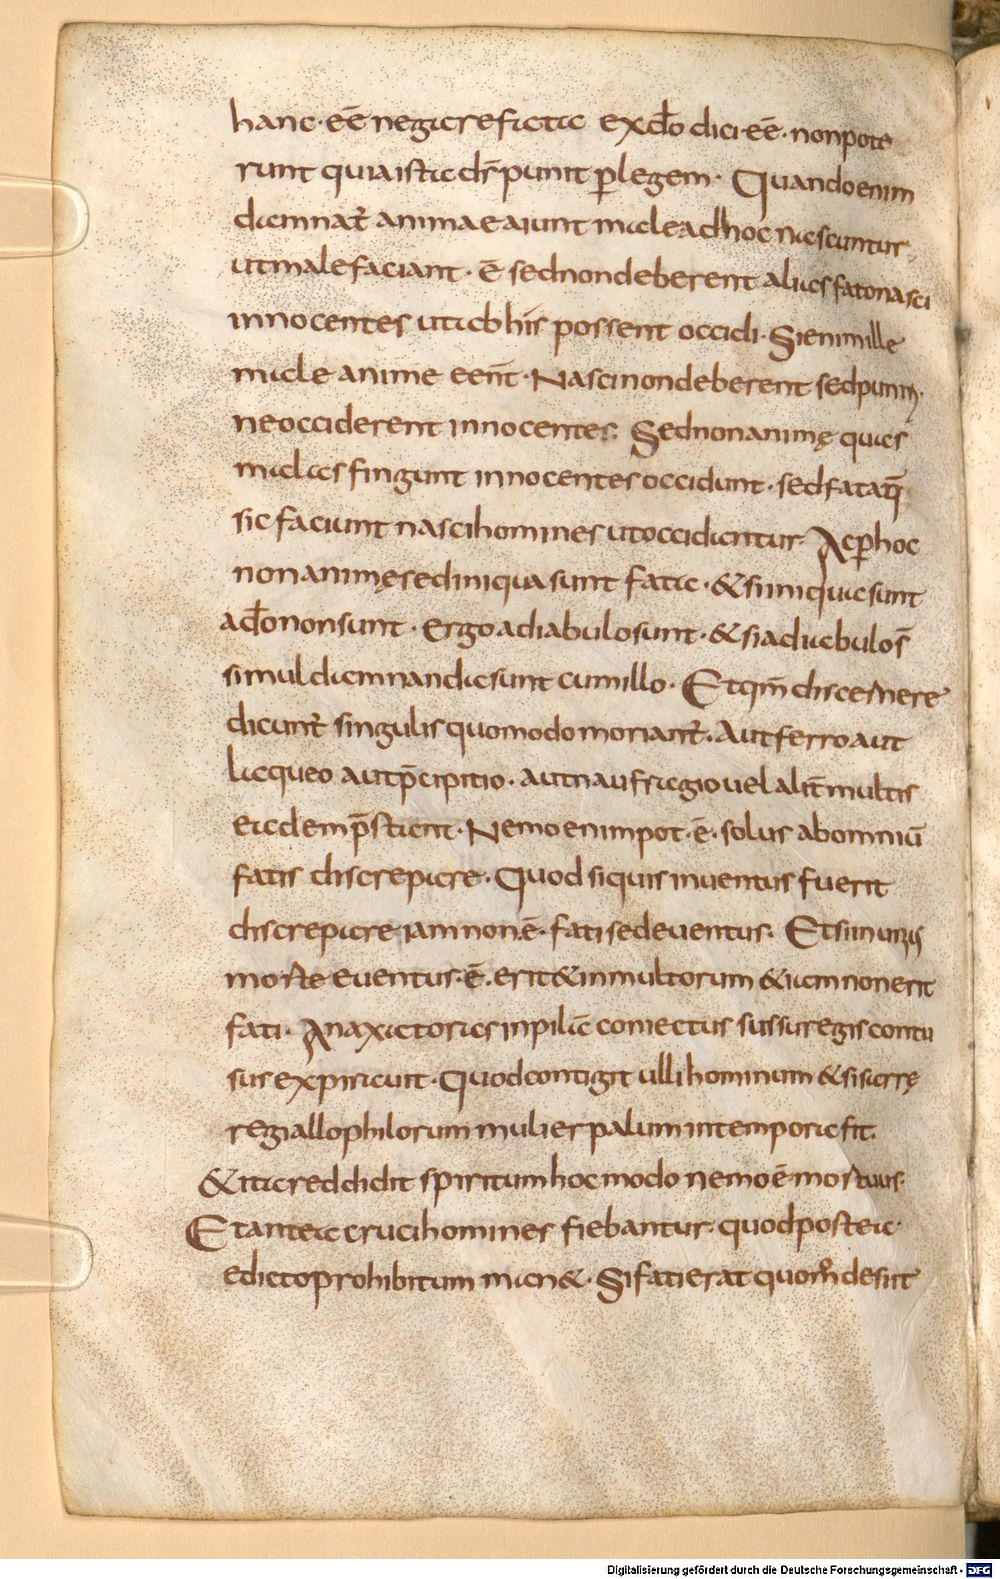 hanc · eē negare fata ex do̅ dici eē · non pote
runt quia ista ds̄ punit p̱ legem · Quando enim
damnat̄ animae aiunt male ad hoc nascuntur
ut male faciant · ē sed non deberent alias fato nasci
innocentes ut ab his possent occidi · Si enim ille
malae anime eēnt · Nasci non deberent sed puniri
ne occiderent innocentes. Sed non animę quas
malas fingunt innocentes occidunt · sed fata q̄
sic faciunt nasci homines ut occidantur. Ac p̱ hoc
non animę sed iniqua sunt fata · & si iniqua sunt
a do̅ non sunt · ergo a diabulo sunt · & si a diabulo s̄
simul damnanda sunt cum illo · Et qm̄ discernere
dicunt̄ singulis quomodo moriant̄. Aut ferro aut
laqueo aut p̄cipitio · aut naufragio vel alit̄ multis
eadem p̄stant · Nemo enim pot · ē · solus ab omniū
fatis discrepare · Quod si quis inventus fuerit
discrepare iam non ē · fati sed eventus. Et si in unius
morte eventus · ē · erit & in multorum & iam non erit
fati · Anaxatoras in pila coniectus iussu regis contu
sus expiravit · Quod contigit ulli hominum & sisarrę
regi allophilorum mulier palum in tempora fit.
& ita reddidit spiritum hoc modo nemo ē mortuus·
Et antea cruci homines fiebantur · quod postea·
edicto prohibitum man& · Si fati erat quom̊ desiit
Digitalisierung gefördert durch die Deutsche Forschungsgemeinschaft - DFG